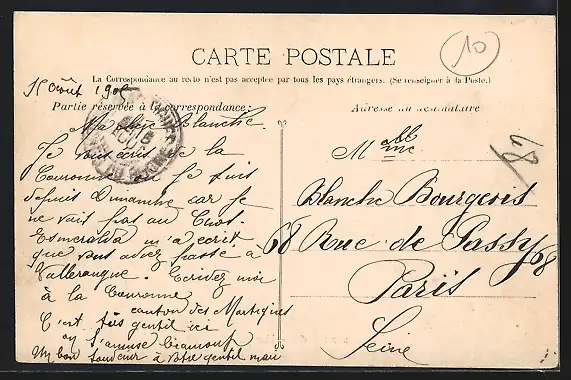 CARTE POSTALE
La Correspondance au recto n'est pas acceptée par tous les pays étrangers. (Se renseigner à la Poste.)
10
Août 190
Partie réservée à la correspondance:
Ma chère Blanche.
Je vous écris de la
Couronne où je suis
depuis Dimanche car je
ne vais pas au
Esmeralda m'a écrit
que vous aviez passé à
Valleraugue. Ecrivez moi
à la Couronne
canton des Martigues
C'est très gentil ici
on s'amuse beaucoup
Un bon souvenir à votre gentil mari
Adresse du destinataire
Mme
Blanche Bourgeois
68 Rue de Passy 68
Paris
Seine